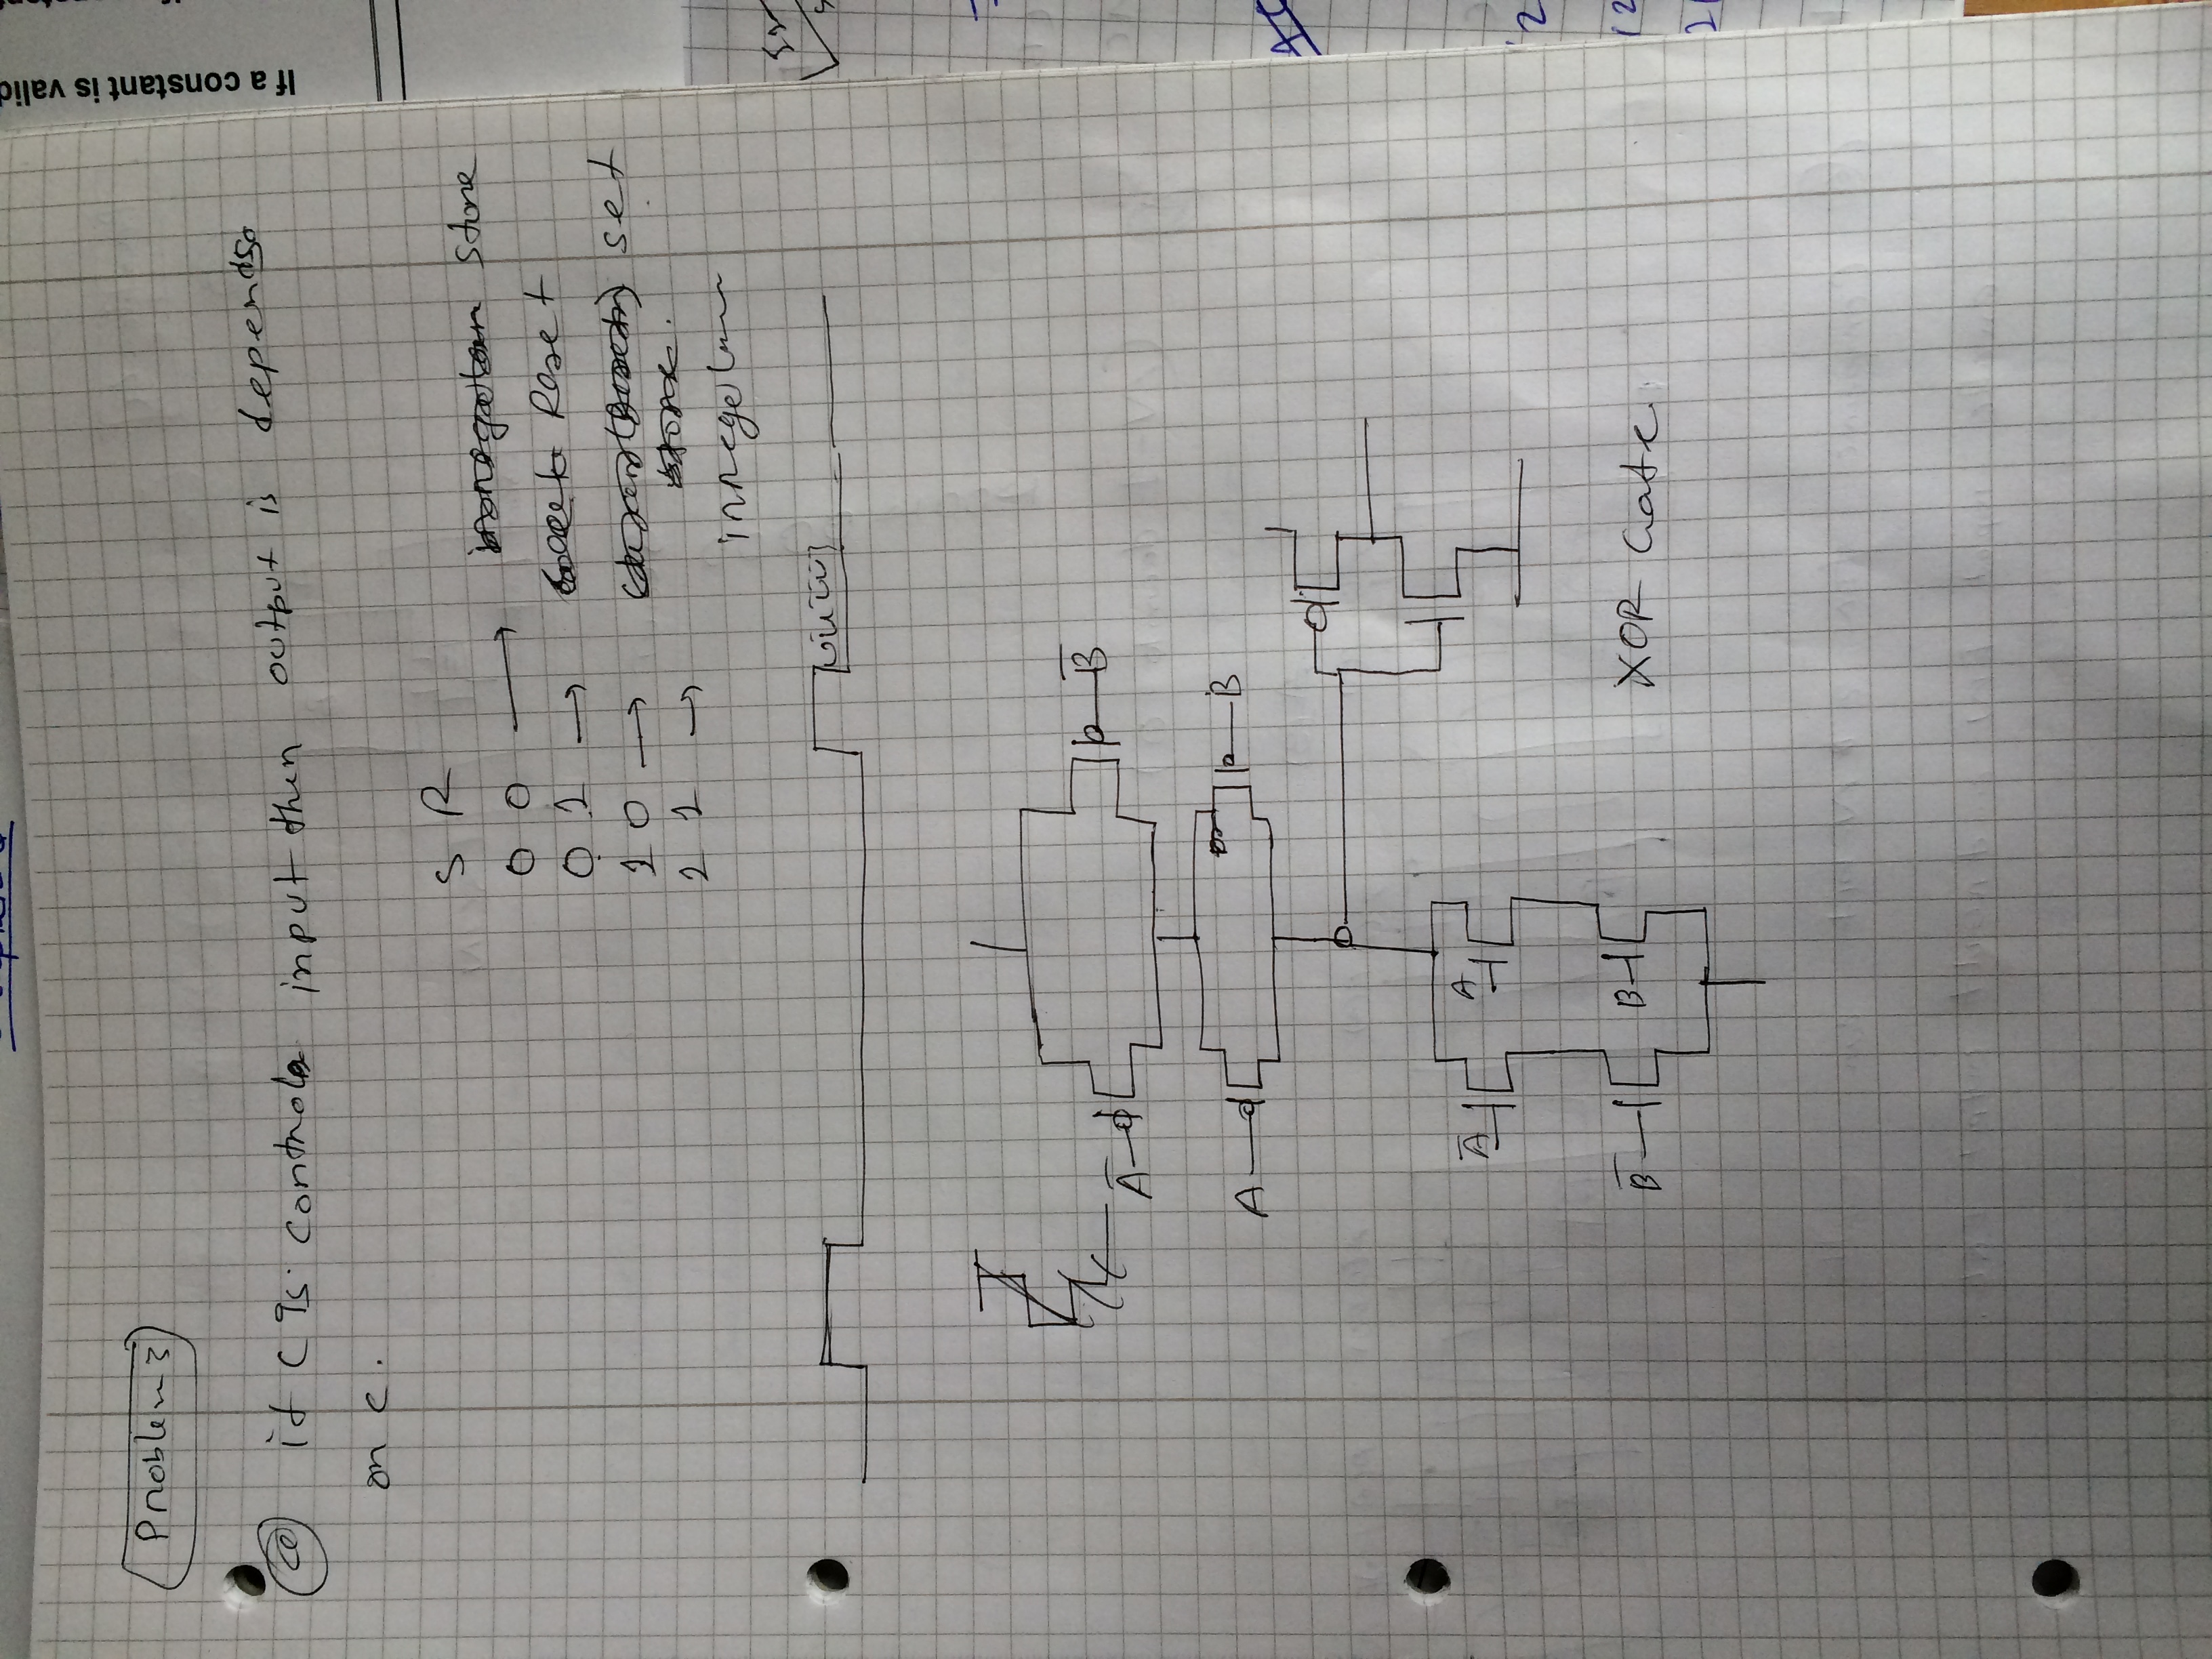 Problem 3
a if C is control input then output is depends
on c.
S R
0 0 → store
0 1 → Reset
1 0 → set
1 1 →
irregular
Ā B̄
A B
Ā A
B̄ B
XOR Gate
If a constant is valid